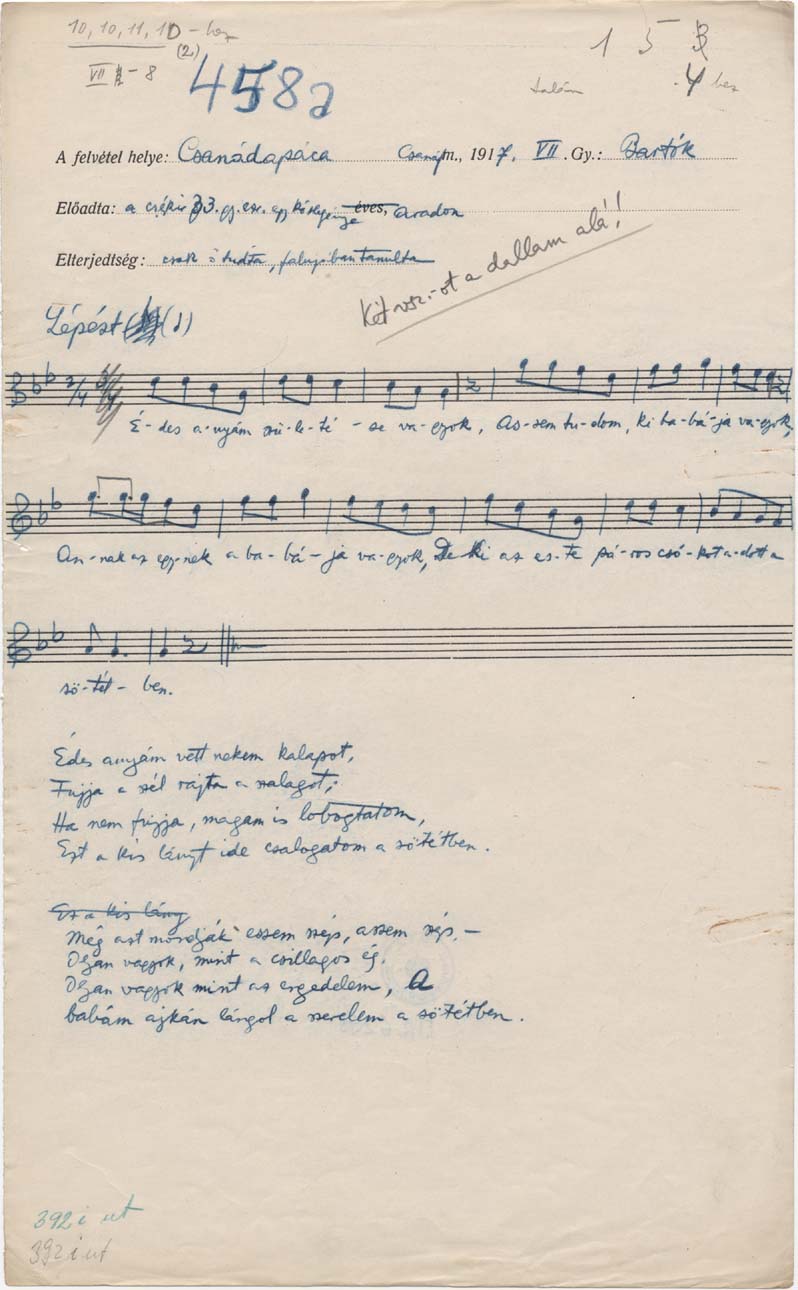 10, 10, 11, 10 - hez
(2)
VII - 8
1 5 3
talán 4 hez
458a
A felvétel helye: Csanádapáca Csanád m., 1917. VII. Gy.: Bartók
Előadta: a 33. gy. ezr. egy közlegénye éves, Aradon
Elterjedtség: csak ő tudta, falujában tanulta
Két vsz.-ot a dallam alá!
Lépést (1)
2/4
É-des a-nyám szü-le-té-se va-gyok, As-sem tu-dom, ki ba-bá-ja va-gyok,
An-nak az egy-nek a ba-bá-ja va-gyok, De ki az es-te pá-ros csó-kot a-dott a
sö-tét-ben.
Édes anyám vett nekem kalapot,
Fujja a szél rajta a szalagot;
Ha nem fujja, magam is lobogtatom,
Ezt a kis lányt ide csalogatom a sötétben.
Ez a kis lány
Még azt mondják essem szép, asszem szép, —
Olyan vagyok, mint a csillagos ég.
Olyan vagyok mint az engedelem, A
babám ajkán lángol a szerelem a sötétben.
392 i ut
392 i ut